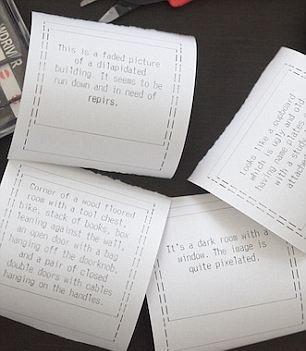 This is a faded picture
of a dilapidated
building. It seems to be
run down and in need of
repirs.
looks like a cupboard
which is ugly and
having name plates
with a
attac
Corner of a wood floored
room with a tool chest,
bike, stack of books, box
learning against the wall,
an open door with a bag
hanging of the doorknob,
and a pair of closed
double doors with cables
hanging on the handles.
It's a dark room with a
window. The image is
quite pixelated.